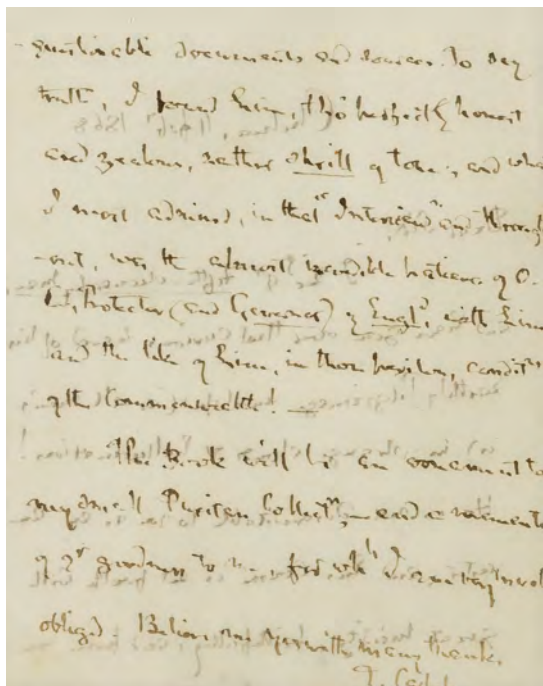 -questionable documents and sources. To say
truth, I found him, tho' perfectly honest
and zealous, rather shrill of tone; and what
I most admired, in that "Interview" and through
-out, was the almost incredible patience of O.
Ld Protector (and Governor) of Engld, with him
and the like of him, in those perilous conditns
of the Commonwealth! —
The Book will be an ornament to
my small Puritan Collectn, — and a memento
of yr goodness to me, for whh I am very much
obliged. Believe me yours with many thanks,
T. Carlyle